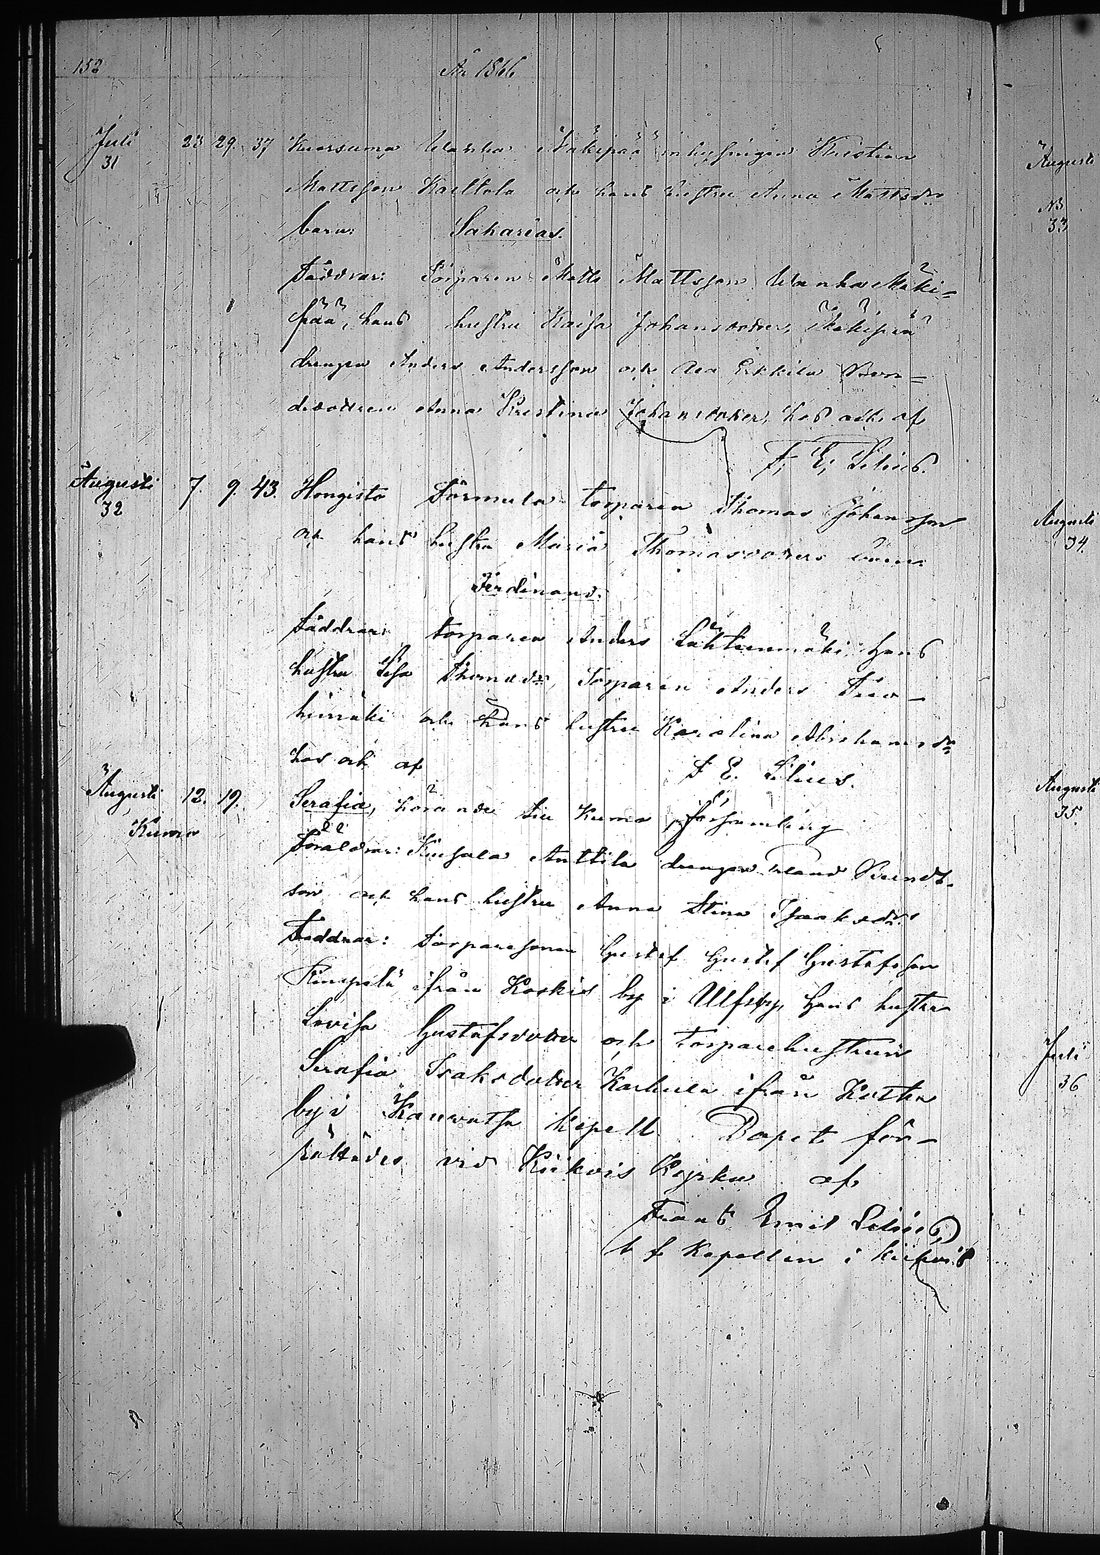 152
År 1866
Juli 23 29 37 Kuorsuma Wanha Näkipää inhysingen Kristian
31
Mattsson Karltola och hans hustru Anna Mattsdr
barn: Sakarias.
Faddrar: Torparen Matts Mattsson Wanha Näki=
pää, hans hustru Kaisa Johansdotter, Näkipää
drengen Anders Andersson och Ala Erkkila Bon=
dedottren Anna Kristina Johansdotter, hos och af
F. E. Silius.
Augusti 7. 9. 43. Hongisto torparen Thomas Johansson
32
och hans hustru Maria Thomasdotters barn:
Ferdinand.
Faddrar: torparen Anders Lähteenmäki, hans
hustru Lisa Thomasdr, Torparen Anders
och hans hustru Karolina Abrahamsdr
hos och af F. E. Silius.
Augusti 12. 19. Serafia, hörande till Kumo församling
Kumo
Föräldrar: Anttila drengen
son och hans hustru Anna Stina Isaaksdr.
Faddrar: torparesonen Gustaf Gustaf Gustafsson
ifrån Koskis by i Ulfsby, hans hustru
Lovisa Gustafsdotter och Torparehustrun
Serafia Isaksdotter Karhula ifrån
by i Kauvatsa kapell. Dopet för=
rättades vid Kiikois Kyrka af
Frans Emil Silius
t f Kapellan i Kiikois
Augusti
No
33
Augusti
34.
Augusti
35.
Juli
36